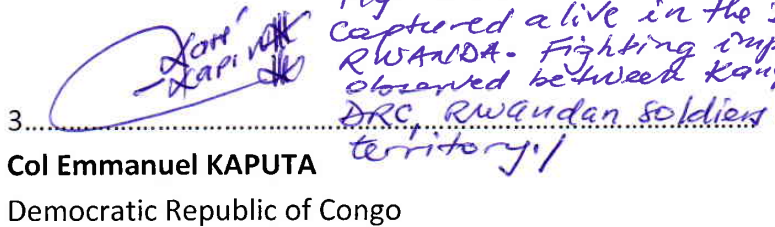 captured alive in the
RWANDA. Fighting
observed between
3
DRC, Rwandan soldiers
territory./
Col Emmanuel KAPUTA
Democratic Republic of Congo